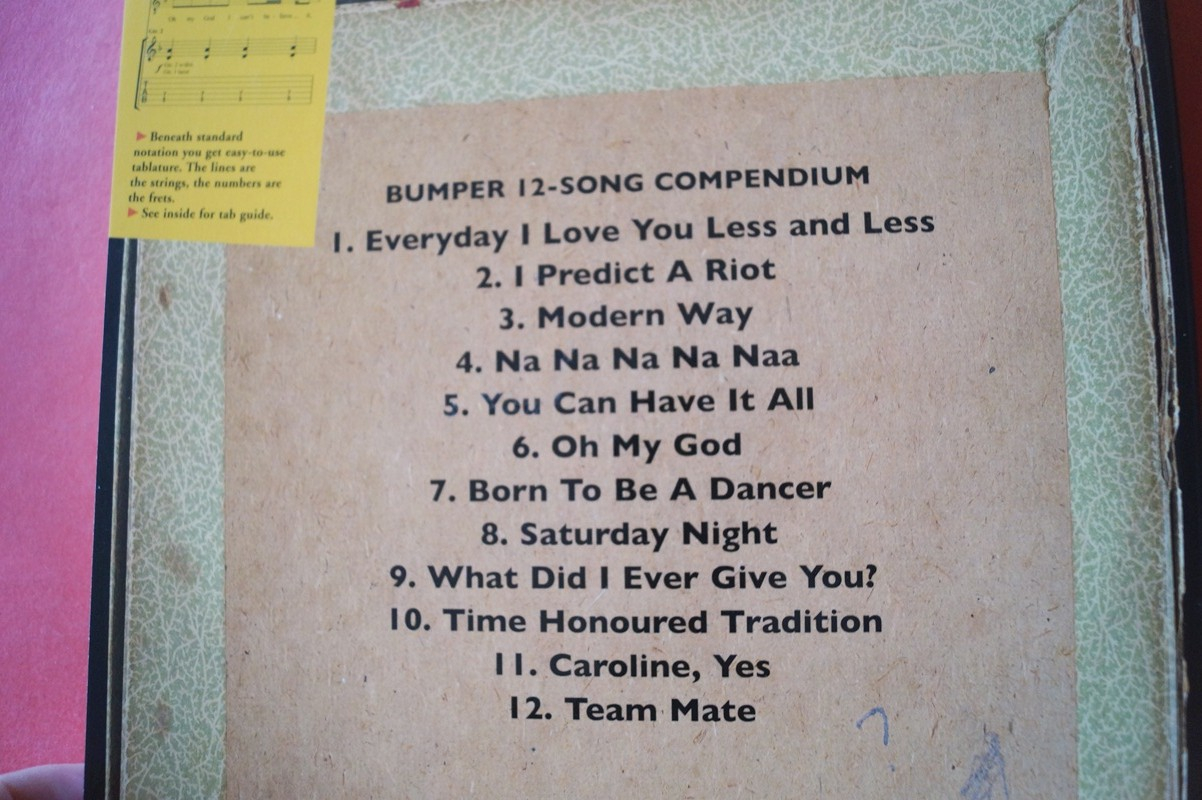 Oh my God I can't be - liev - e
▶ Beneath standard
notation you get easy-to-use
tablature. The lines are
the strings, the numbers are
the frets.
▶ See inside for tab guide.
BUMPER 12-SONG COMPENDIUM
1. Everyday I Love You Less and Less
2. I Predict A Riot
3. Modern Way
4. Na Na Na Na Naa
5. You Can Have It All
6. Oh My God
7. Born To Be A Dancer
8. Saturday Night
9. What Did I Ever Give You?
10. Time Honoured Tradition
11. Caroline, Yes
12. Team Mate